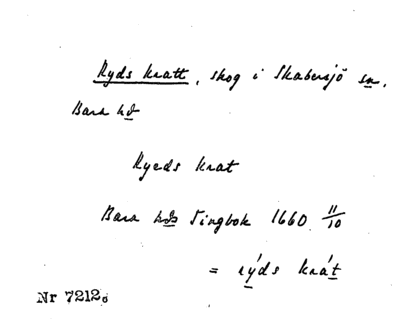 Ryds kratt, skog i Skabersjö sn.
Bara hd
Ryeds krat
Bara hds Tingbok 1660 11/10
= rýds krát
Nr 7212.